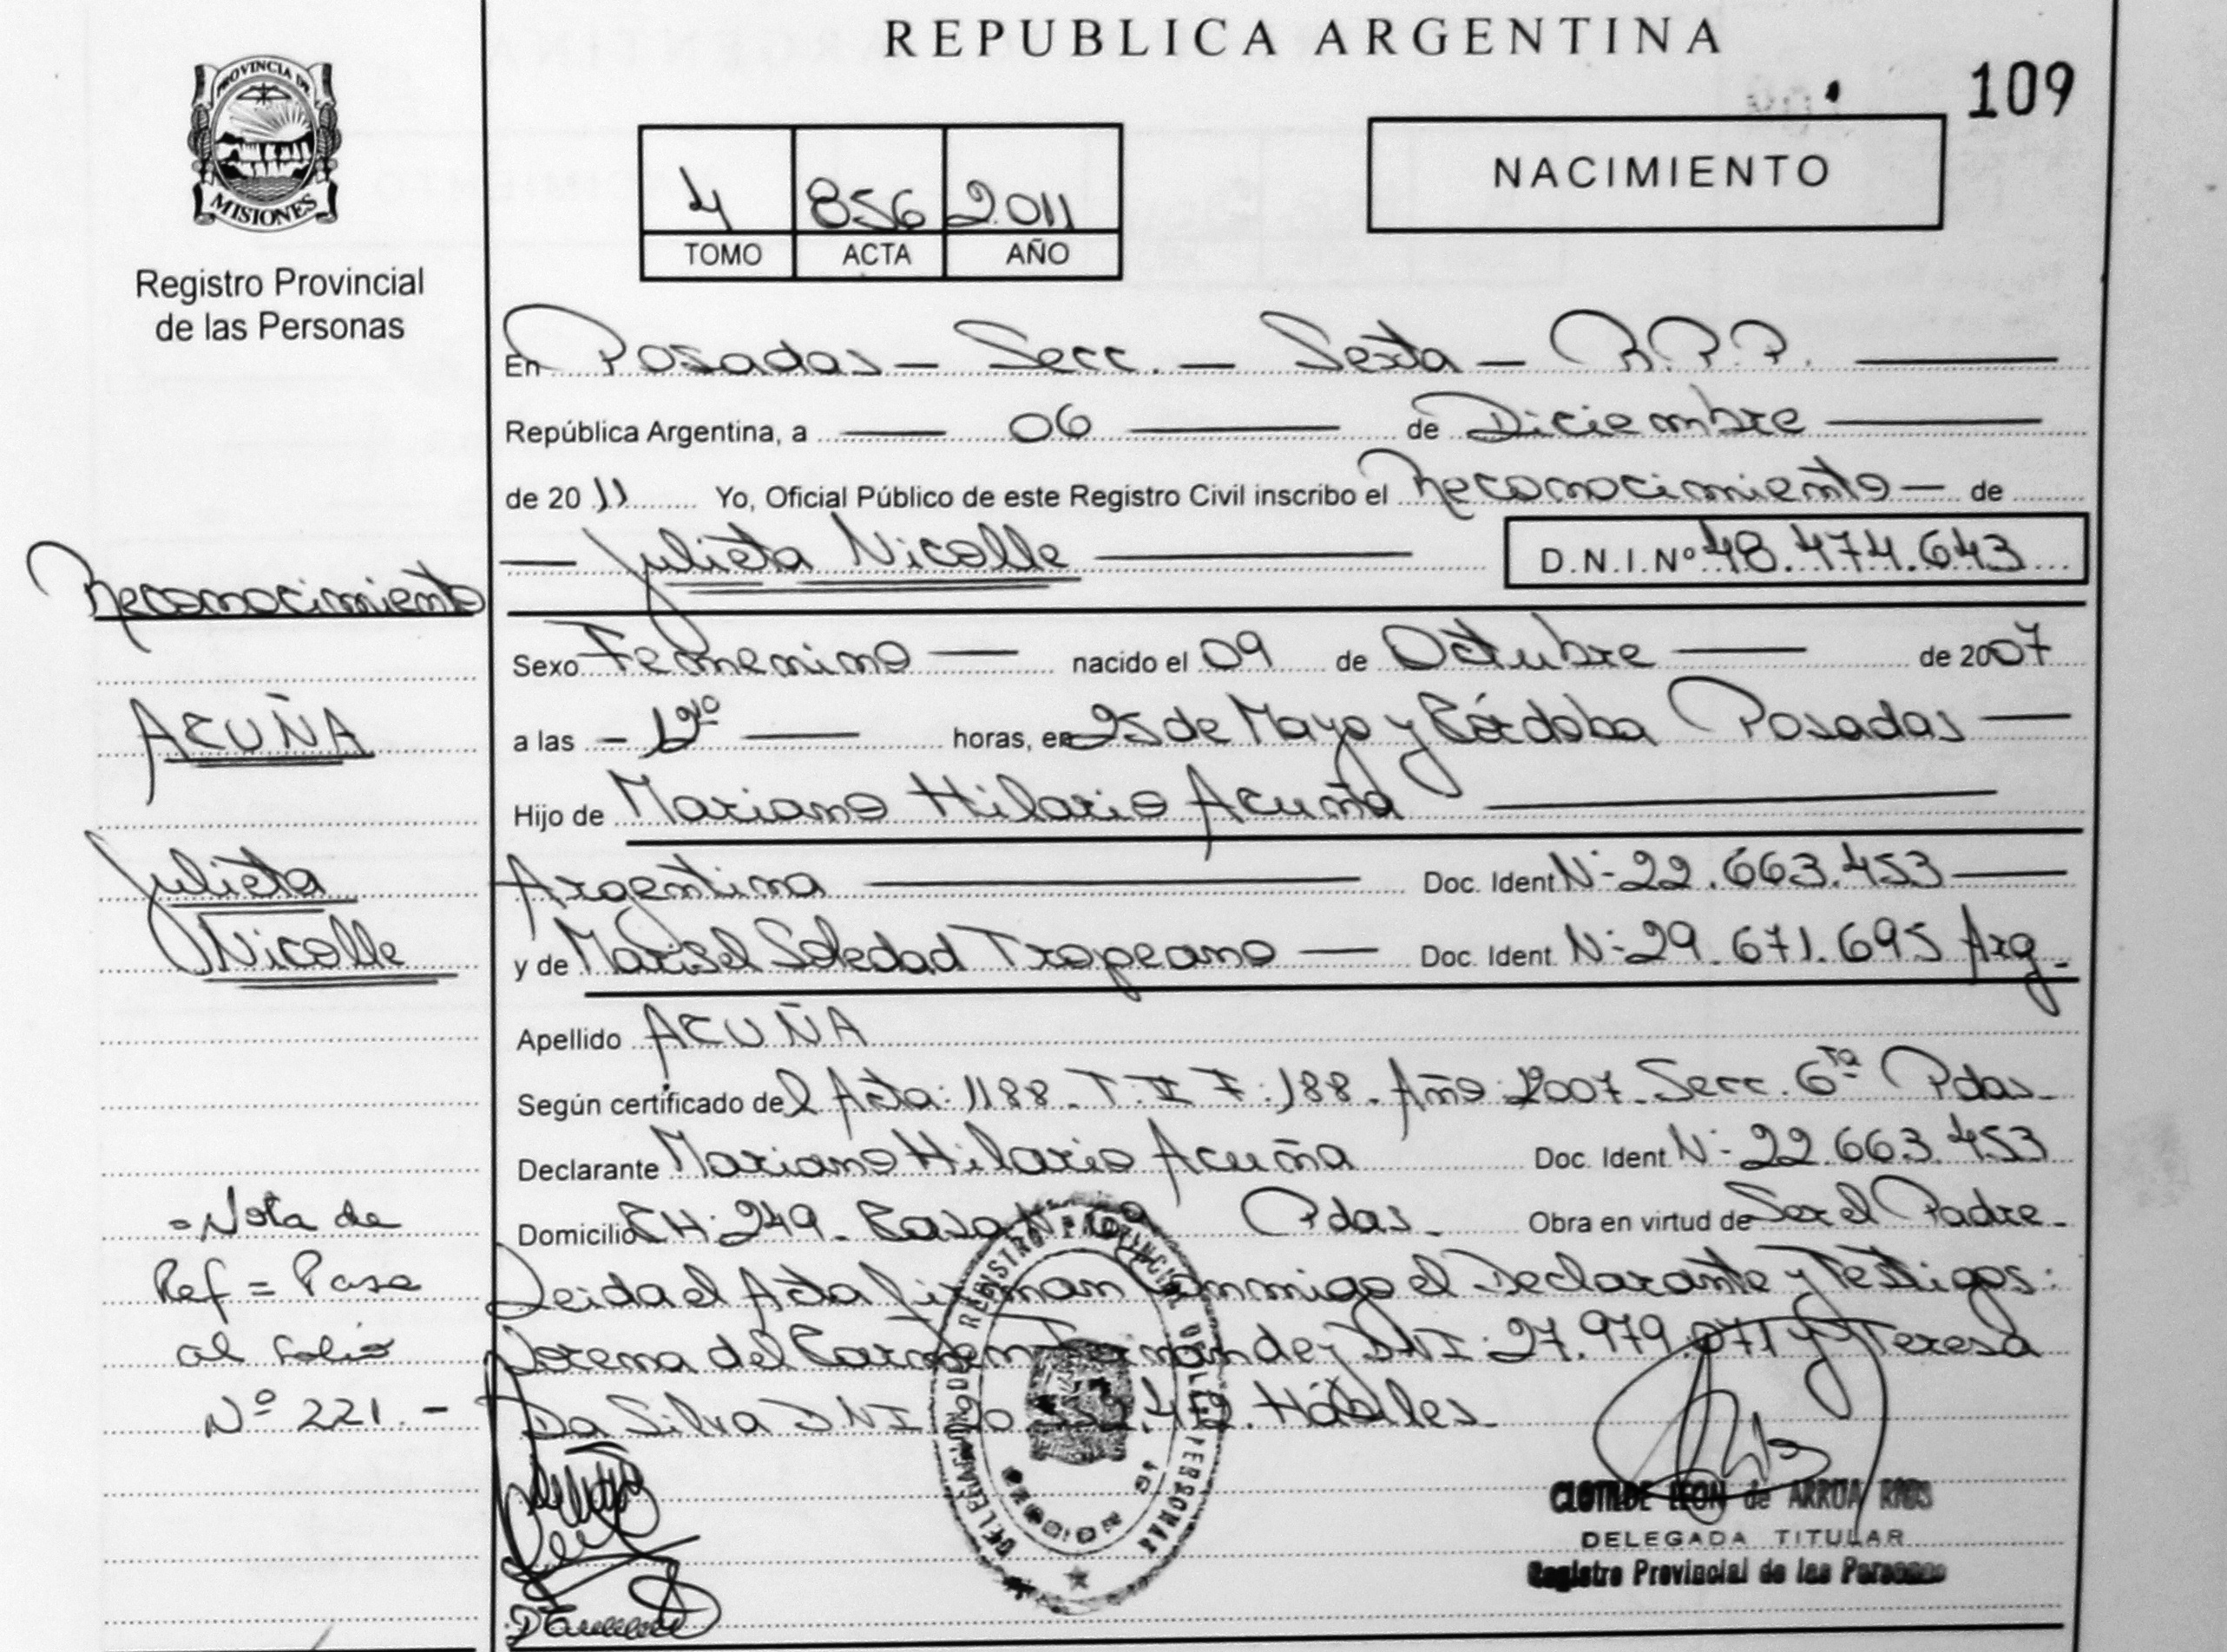 REPUBLICA ARGENTINA
109
PROVINCIA DE
MISIONES
Registro Provincial
de las Personas
4 856 2011
TOMO ACTA AÑO
NACIMIENTO
En Posadas — Secc. — Sexta — R.P.P. —
República Argentina, a — 06 — de Diciembre —
de 2011 Yo, Oficial Público de este Registro Civil inscribo el Reconocimiento — de
— Julieta Nicolle — D.N.I.Nº 48.474.643
Sexo Femenino — nacido el 09 de Octubre — de 2007
a las — horas, en 25 de Mayo y Córdoba Posadas —
Hijo de Mariano Hilario Acuña —
Argentina — Doc. Ident N: 22.663.453 —
y de Marisel Soledad Tropeano — Doc. Ident. N: 29.671.695 Arg.
Apellido ACUÑA
Según certificado del Acta: 1188. T. II F: 188. Año: 2007. Secc. 6ta Pdas.
Declarante Mariano Hilario Acuña Doc. Ident. N: 22.663.453
Domicilio CH: 249. Casa Pdas. Obra en virtud de Ser el Padre.
Leida el Acta firman conmigo el Declarante y Testigos:
Lorena del Carmen DNI: 27.979.071 y Teresa
Da Silva DNI 20 Hábiles.
Reconocimiento
ACUÑA
Julieta
Nicolle
= Nota de
Ref = Pase
al folio
Nº 221. -
DELEGACION DEL REGISTRO PROVINCIAL DE LAS PERSONAS
CLOTILDE LEON de ARRUA RIOS
DELEGADA TITULAR
Registro Provincial de las Personas